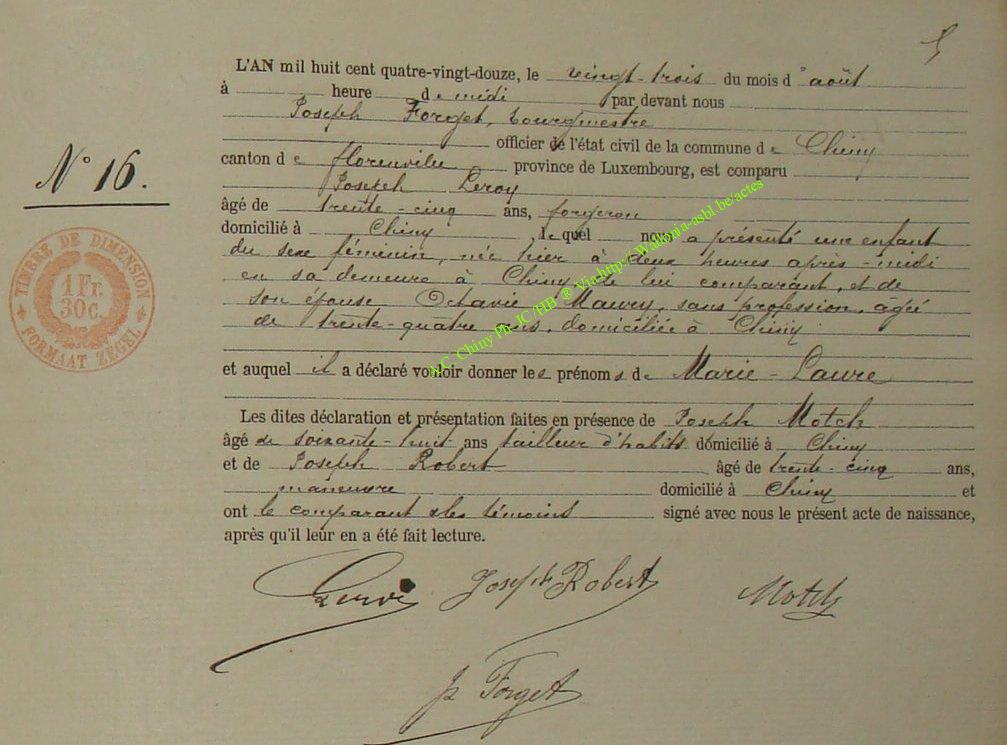 5
L'AN mil huit cent quatre-vingt-douze, le vingt-trois du mois d'août
à heure de midi par devant nous
Joseph Forget, bourgmestre
officier de l'état civil de la commune de Chiny
canton de florenville province de Luxembourg, est comparu
Joseph Leroy
âgé de trente-cinq ans, forgeron
domicilié à Chiny, lequel nous a présenté une enfant
du sexe féminin, née hier à deux heures après-midi
en sa demeure à Chiny de lui comparant, et de
son épouse Octavie Maury, sans profession, âgée
de trente-quatre ans, domiciliée à Chiny
et auquel il a déclaré vouloir donner les prénoms de Marie-Laure
Les dites déclaration et présentation faites en présence de Joseph Motch
âgé de soixante-huit ans tailleur d'habits domicilié à Chiny
et de Joseph Robert âgé de trente-cinq ans,
manœuvre domicilié à Chiny et
ont le comparant & les témoins signé avec nous le présent acte de naissance,
après qu'il leur en a été fait lecture.
N° 16.
TIMBRE DE DIMENSION
1 Fr.
30 c.
FORMAAT ZEGEL
A.C. Chiny Ph. JC/HB ® Via http://Wallonia-asbl.be/actes
Joseph Robert
Motch
Js Forget